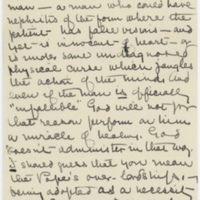 man — a man who could have
nephritis of the form where the
patient has false visions — and
yet is innocent of heart — or
is more sane under some
physical curse which jangles
the action of the mind, and
even if the man is officially
"infallible" God will not for
that reason perform on him
a miracle of healing. God
doesn't administer in that way.
I should guess that you mean
that Pope's over-lordship,
being adopted as a necessity